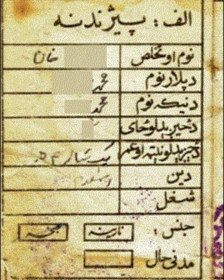 الف: پیژندنه
نوم او تخلص خان
د پلار نوم محمد
د نیکه نوم محمد
د زیږیدلو ځای
د زیږیدلو نیټه او عمر
دین
شغل
جنس: نارینه ښځه
مدني حال